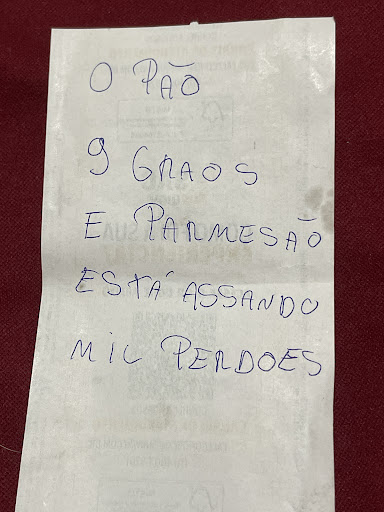 O PÃO
9 GRAOS
E PARMESÃO
ESTÁ ASSANDO
MIL PERDOES